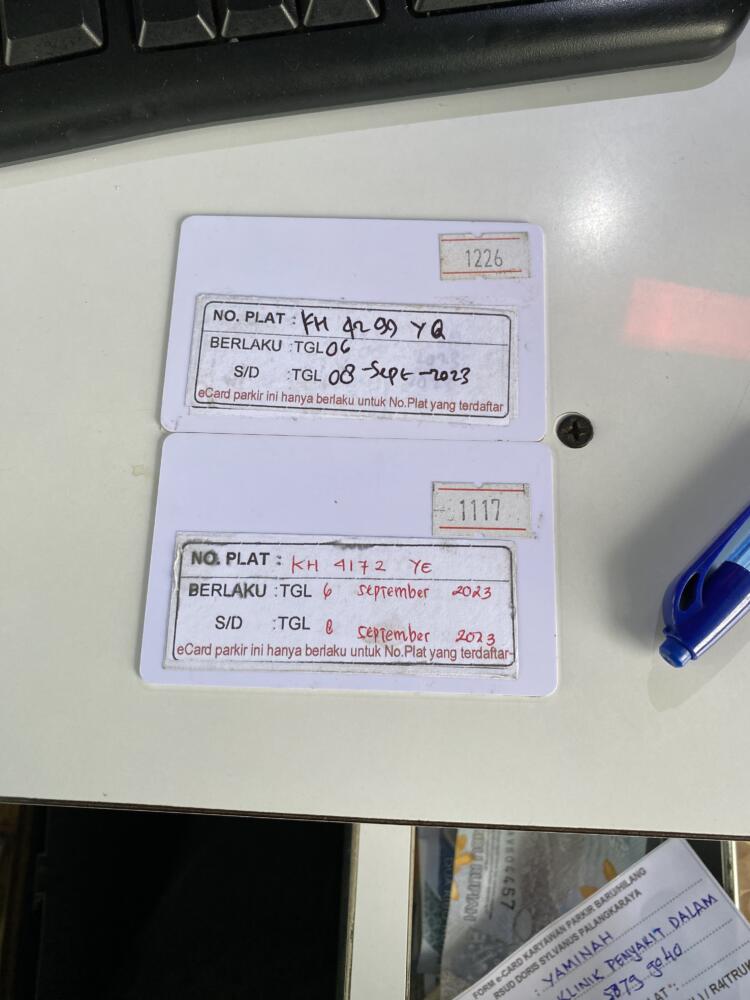 1226
NO. PLAT : KH 4299 YQ
BERLAKU :TGL 06
S/D :TGL 08-Sept-2023
eCard parkir ini hanya berlaku untuk No.Plat yang terdaftar
1117
NO. PLAT : KH 4172 YE
BERLAKU :TGL 6 September 2023
S/D :TGL 8 September 2023
eCard parkir ini hanya berlaku untuk No.Plat yang terdaftar
FORM e-CARD KARYAWAN PARKIR BARU/HILANG
RSUD DORIS SYLVANUS PALANGKARAYA
: YAMINAH
KLINIK PENYAKIT DALAM